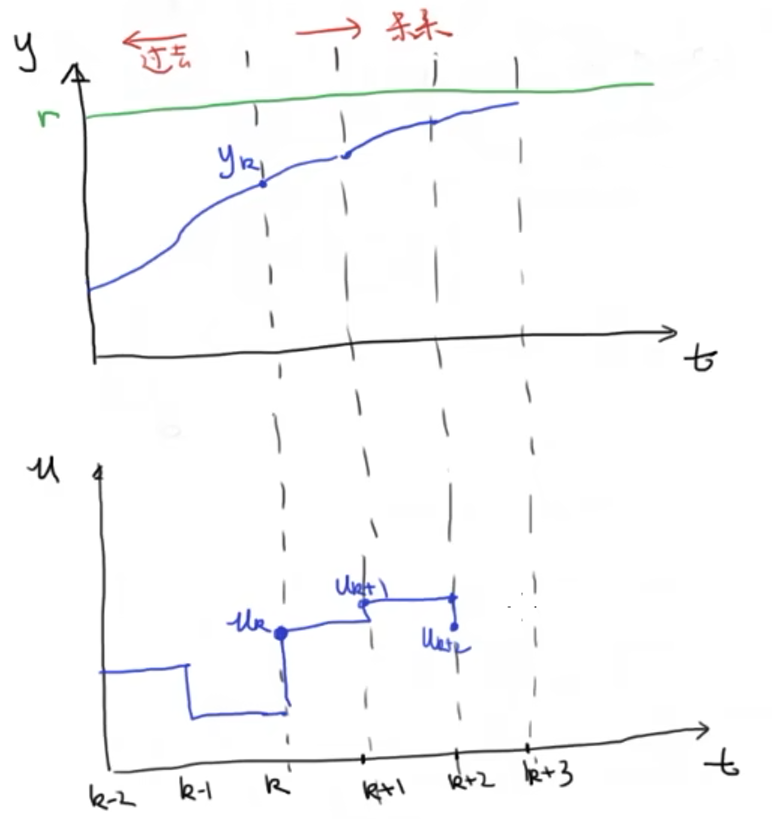 y
过去
未来
r
yk
t
u
uk
uk+1
uk+2
k-2 k-1 k k+1 k+2 k+3
t